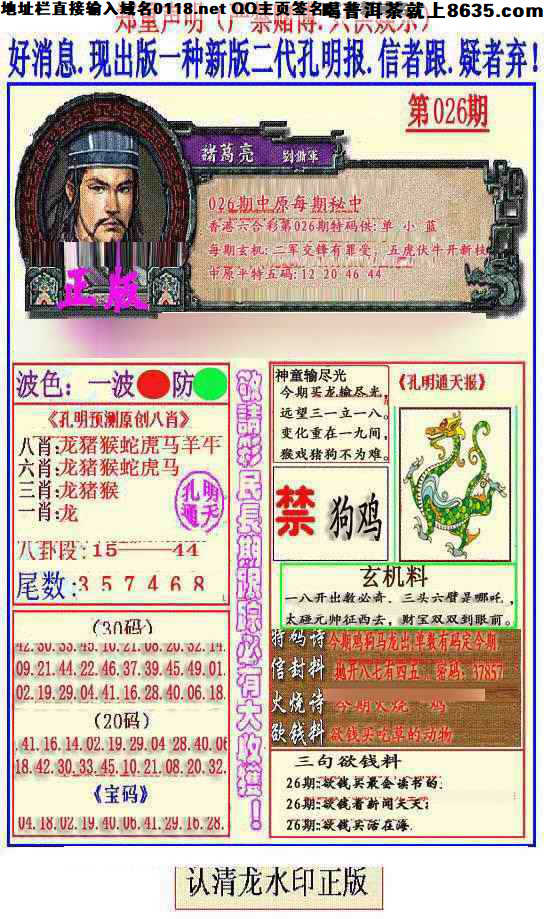 地址栏直接输入域名0118.net QQ主页签名
喝普洱茶就上8635.com
郑重声明(严禁赌博.只供娱乐)
好消息.现出版一种新版二代孔明报.信者跟.疑者弃!
第026期
諸葛亮 劉備軍
026期中原每期秘中
香港六合彩第026期特码供:单 小 蓝
每期玄机:二军交锋有罪受, 五虎伏牛开新枝
中原平特五码:12 20 46 44
正版
波色:一波 防
《孔明预测原创八肖》
八肖:龙猪猴蛇虎马羊牛
六肖:龙猪猴蛇虎马
三肖:龙猪猴
一肖:龙
孔明通天
八卦段:15——44
尾数:3 5 7 4 6 8
(30码)
42.30.33.45.10.21.08.20.32.14.
09.21.44.22.46.37.39.45.49.01.
02.19.29.04.41.16.28.40.06.18.
(20码)
.41.16.14.02.19.29.04 28.40.06
18.42.30.33.45.10.21.08.20.32.
《宝码》
04.18.02.19.40.06.41.29.16.28.
敬請彩民長期跟踪必有大收獲!
神童输尽光
今期买龙输尽光,
远望三一立一八。
变化重在一九间,
猴戏猪狗不为难。
禁 狗鸡
《孔明通天报》
玄机料
一八开出数必奇、三头六臂是哪吒,
太碰元帅征西去,财宝双双到眼前。
特码诗 今期鸡狗马龙出,单数有码定今期
信封料 抛开八七有四五、密码:37857
火烧诗 今期火烧 码
欲钱料 欲钱买吃草的动物
三句欲钱料
26期:欲钱买最会读书的.
26期:欲钱看新闻天天;
26期:欲钱买活在海.
认清龙水印正版